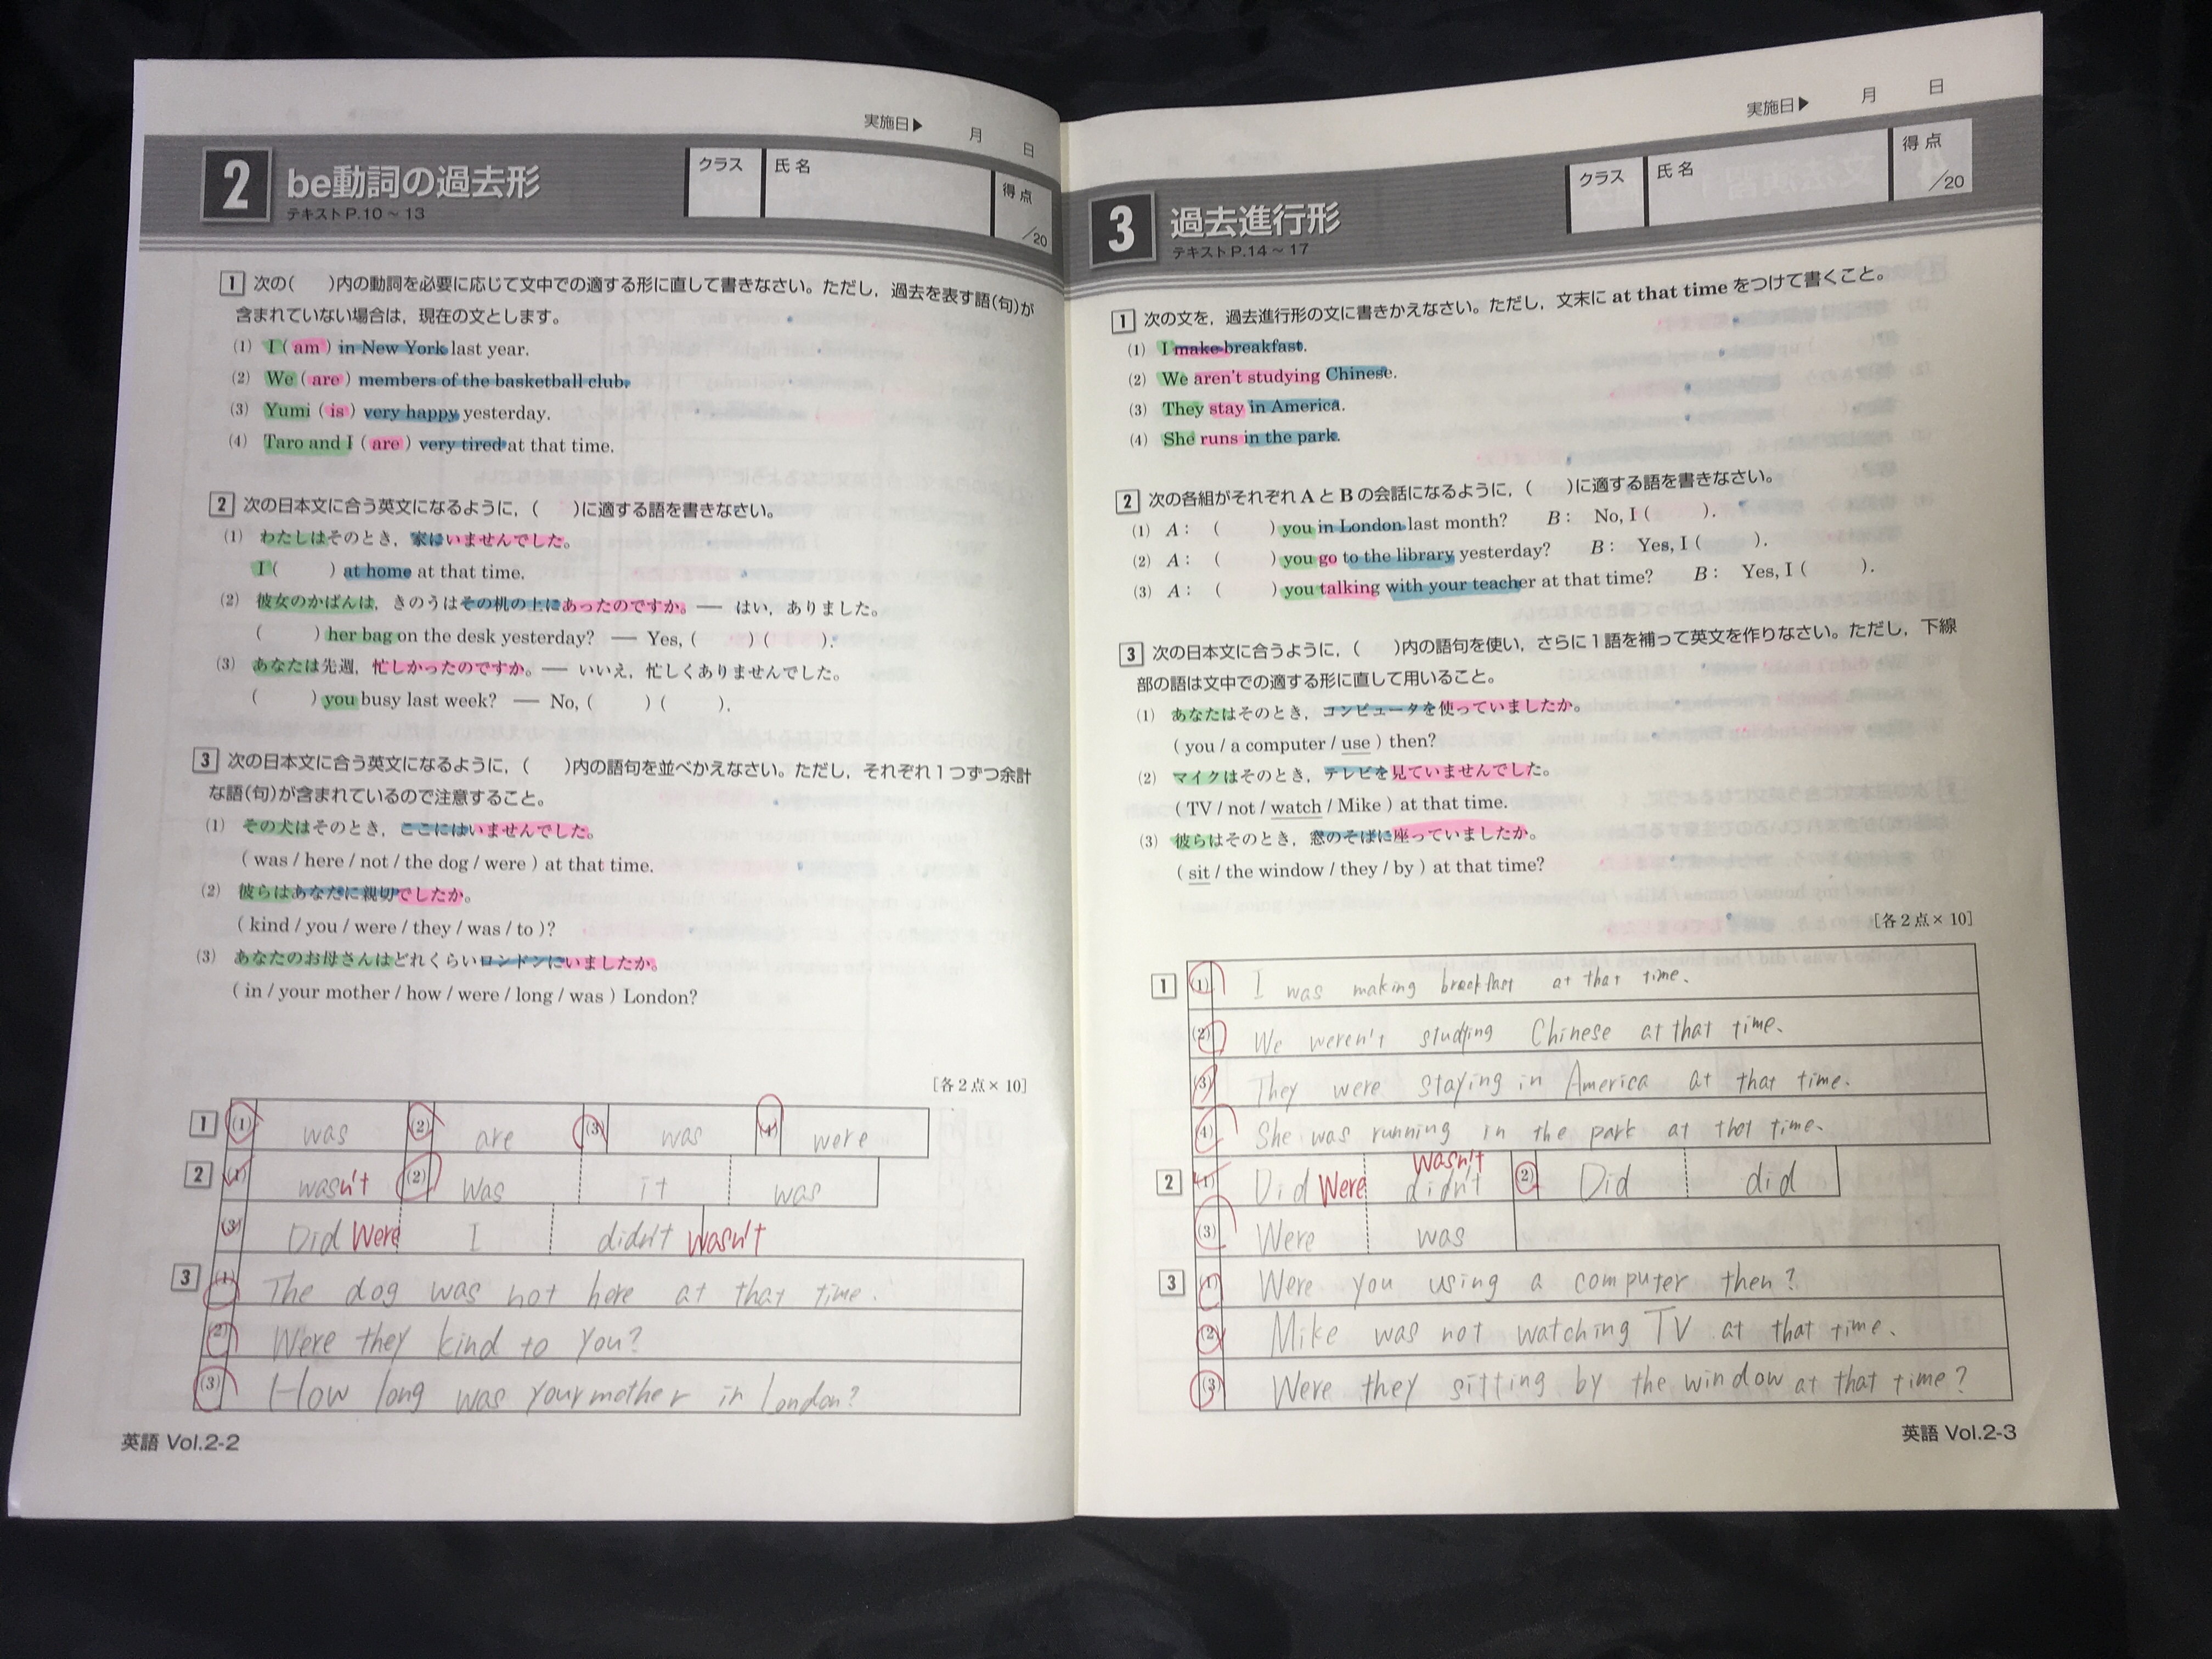 実施日▶ 月 日
2 be動詞の過去形
テキストP.10～13
クラス 氏名 得点 /20
1 次の( )内の動詞を必要に応じて文中での適する形に直して書きなさい。ただし，過去を表す語(句)が
含まれていない場合は，現在の文とします。
(1) I ( am ) in New York last year.
(2) We ( are ) members of the basketball club.
(3) Yumi ( is ) very happy yesterday.
(4) Taro and I ( are ) very tired at that time.
2 次の日本文に合う英文になるように，( )に適する語を書きなさい。
(1) わたしはそのとき，家にいませんでした。
I ( ) at home at that time.
(2) 彼女のかばんは，きのうはその机の上にあったのですか。— はい，ありました。
( ) her bag on the desk yesterday? — Yes, ( ) ( ).
(3) あなたは先週，忙しかったのですか。— いいえ，忙しくありませんでした。
( ) you busy last week? — No, ( ) ( ).
3 次の日本文に合う英文になるように，( )内の語句を並べかえなさい。ただし，それぞれ1つずつ余計
な語(句)が含まれているので注意すること。
(1) その犬はそのとき，ここにはいませんでした。
( was / here / not / the dog / were ) at that time.
(2) 彼らはあなたに親切でしたか。
( kind / you / were / they / was / to )?
(3) あなたのお母さんはどれくらいロンドンにいましたか。
( in / your mother / how / were / long / was ) London?
[各2点×10]
1 (1) was (2) are (3) was (4) were
2 (1) wasn't (2) Was it was
(3) Did Were I didn't wasn't
3 (1) The dog was not here at that time.
(2) Were they kind to you?
(3) How long was your mother in London?
英語 Vol.2-2
実施日▶ 月 日
3 過去進行形
テキストP.14～17
クラス 氏名 得点 /20
1 次の文を，過去進行形の文に書きかえなさい。ただし，文末に at that time をつけて書くこと。
(1) I make breakfast.
(2) We aren't studying Chinese.
(3) They stay in America.
(4) She runs in the park.
2 次の各組がそれぞれ A と B の会話になるように，( )に適する語を書きなさい。
(1) A： ( ) you in London last month? B： No, I ( ).
(2) A： ( ) you go to the library yesterday? B： Yes, I ( ).
(3) A： ( ) you talking with your teacher at that time? B： Yes, I ( ).
3 次の日本文に合うように，( )内の語句を使い，さらに1語を補って英文を作りなさい。ただし，下線
部の語は文中での適する形に直して用いること。
(1) あなたはそのとき，コンピュータを使っていましたか。
( you / a computer / use ) then?
(2) マイクはそのとき，テレビを見ていませんでした。
( TV / not / watch / Mike ) at that time.
(3) 彼らはそのとき，窓のそばに座っていましたか。
( sit / the window / they / by ) at that time?
[各2点×10]
1 (1) I was making breakfast at that time.
(2) We weren't studying Chinese at that time.
(3) They were staying in America at that time.
(4) She was running in the park at that time.
2 (1) Did Were didn't wasn't (2) Did did
(3) Were was
3 (1) Were you using a computer then?
(2) Mike was not watching TV at that time.
(3) Were they sitting by the window at that time?
英語 Vol.2-3